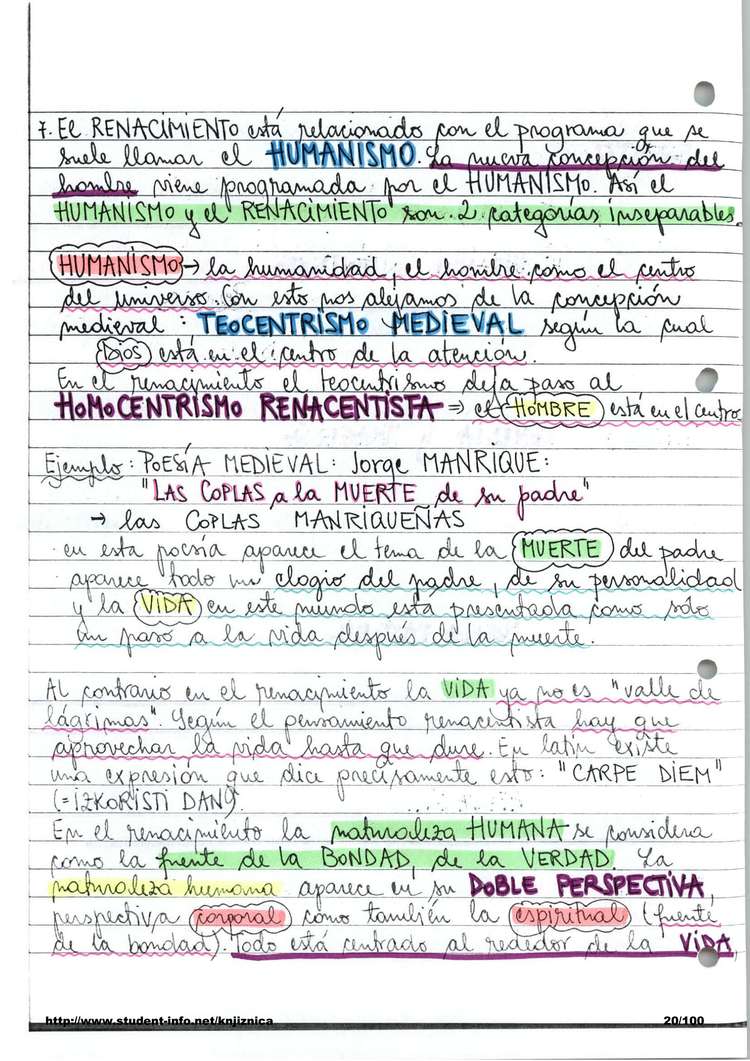 7. El RENACIMIENTO está relacionado con el programa que se
suele llamar el HUMANISMO. La nueva concepción del
hombre viene programada por el HUMANISMO. Así el
HUMANISMO y el RENACIMIENTO son 2 categorías inseparables.
HUMANISMO → la humanidad, el hombre como el centro
del universo. Con esto nos alejamos de la concepción
medieval: TEOCENTRISMO MEDIEVAL según la cual
DiOS está en el centro de la atención.
En el renacimiento el teocentrismo deja paso al
HOMOCENTRISMO RENACENTISTA ⇒ el HOMBRE está en el centro
Ejemplo: POESÍA MEDIEVAL: Jorge MANRIQUE:
"LAS COPLAS a la MUERTE de su padre"
→ las COPLAS MANRIQUEÑAS
· en esta poesía aparece el tema de la MUERTE del padre
· aparece todo un elogio del padre, de su personalidad
y la VIDA en este mundo está presentada como sólo
un paso a la vida después de la muerte.
Al contrario en el renacimiento la VIDA ya no es "valle de
lágrimas". Según el pensamiento renacentista hay que
aprovechar la vida hasta que dure. En latín existe
una expresión que dice precisamente esto: "CARPE DIEM"
(=IZKORISTI DAN).
En el renacimiento la naturaleza HUMANA se considera
como la fuente de la BONDAD, de la VERDAD. La
naturaleza humana aparece en su DOBLE PERSPECTIVA,
perspectiva corporal como también la espiritual (fuente
de la bondad). Todo está centrado al rededor de la VIDA,
http://www.student-info.net/knjiznica 20/100